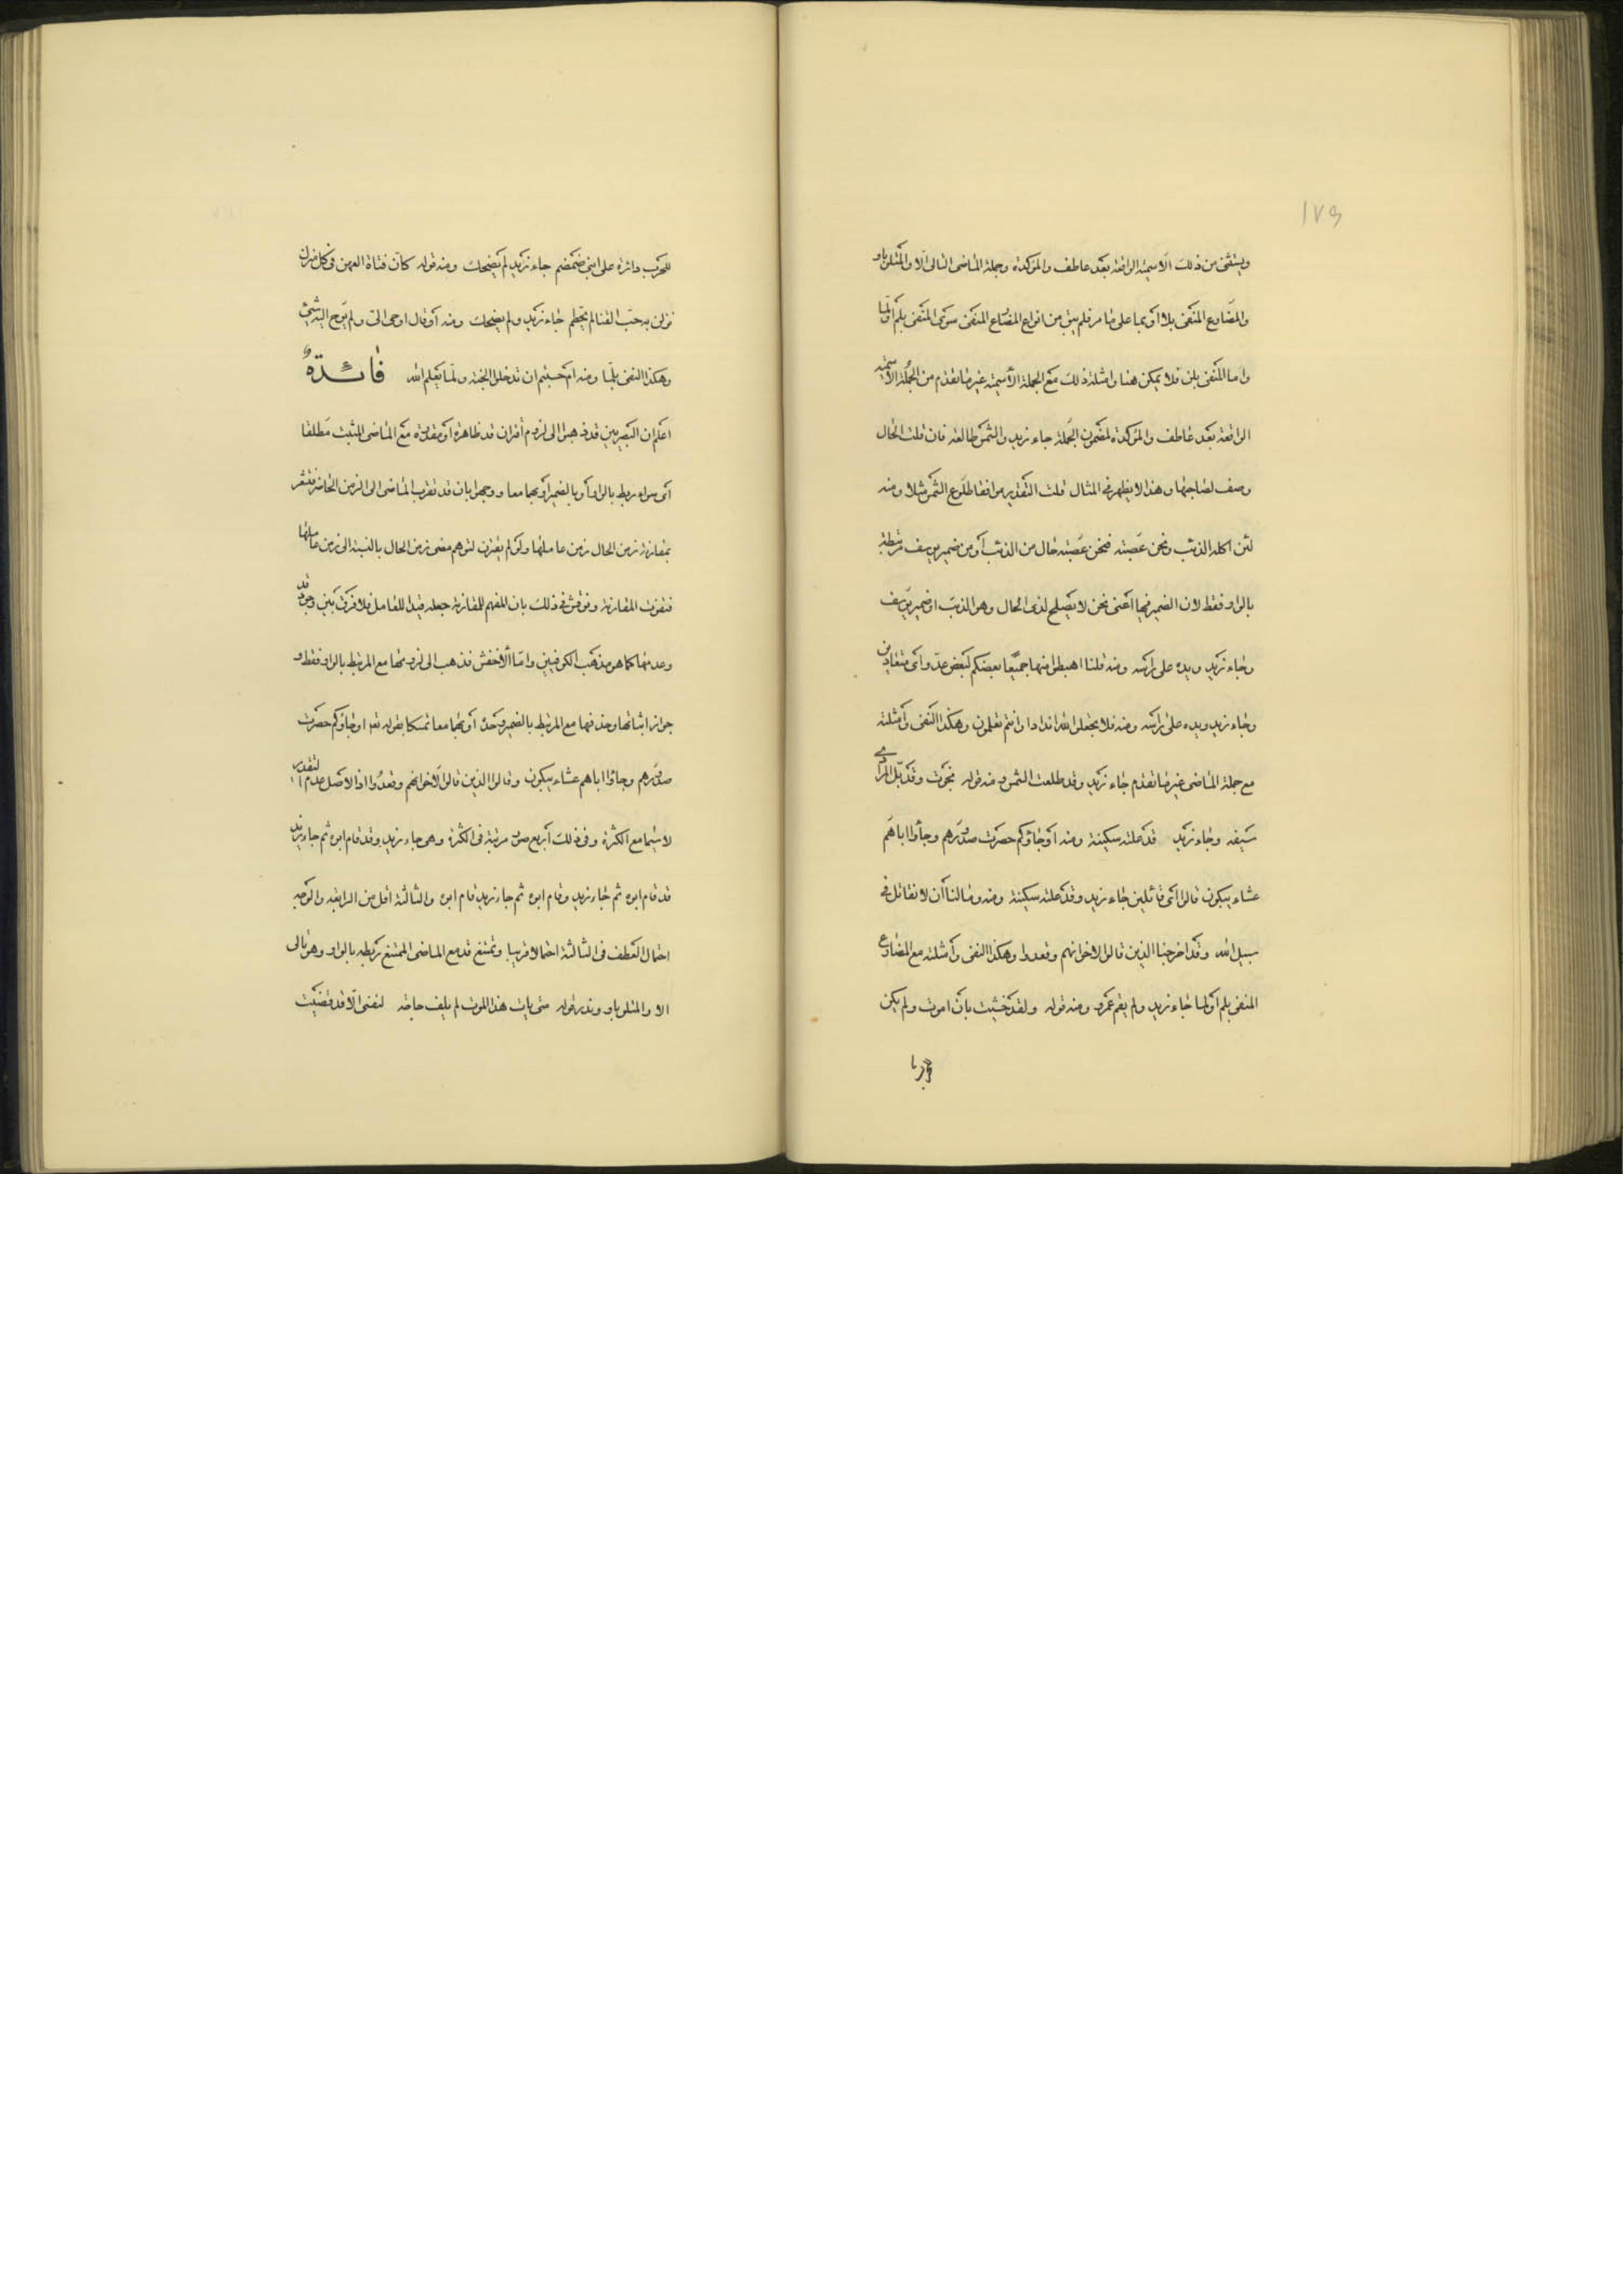 ١٧٩
ويستثنى من ذلك الاسمية الواقعة بعد عاطف والمؤكدة وجملة الماضى التالى الا والمتلو باو
والمضارع المنفى بلا أو بما على ما مر فلم يبق من انواع المضارع المنفى سوى المنفى بلم او لما
واما المنفى بلن فلا يمكن هنا وامثلة ذلك مع الجملة الاسمية غير ما تقدم من الجملة الاسمية
الواقعة بعد عاطف والمؤكدة لمضمون الجملة جاء زيد والشمس طالعة فان قلت الحال
وصف لصاحبها وهذا لا يظهر فى المثال قلت التقدير موافقا طلوع الشمس مثلا ومنه
لئن اكله الذئب ونحن عصبة فنحن عصبة حال من الذئب أو من ضمير يوسف مرتبطة
بالواو فقط لان الضمير فيها أعنى نحن لا يصلح لذى الحال وهو الذئب او ضمير يوسف
وجاء زيد ويده على رأسه ومنه قلنا اهبطوا منها جميعا بعضكم لبعض عدو أى متعادين
وجاء زيد ويده على رأسه ومنه فلا تجعلوا لله اندادا وانتم تعلمون وهكذا النفى وأمثلته
مع جملة الماضى غير ما تقدم جاء زيد وقد طلعت الشمس ومنه قوله نجوت وقد بل المرادى
سيفه وجاء زيد قد علته سكينة ومنه أو جاؤكم حصرت صدورهم وجاؤا اباهم
عشاء يبكون قالوا أى قائلين جاء زيد وقد علته سكينة ومنه وما لنا أن لا نقاتل فى
سبيل الله وقد اخرجنا الذين قالوا لاخوانهم وقعدوا وهكذا النفى وأمثلته مع المضارع
المنفى بلم أو لما جاء زيد ولم يقم عمرو ومنه قوله ولقد خشيت بان اموت ولم يكن
للحرب دائرة على ابنى ضمضم جاء زيد لم يضحك ومنه قوله كأن فتاة العهن فى كل منزل
نزلن به حب الفنا لم يحطم جاء زيد ولم يضحك ومنه أو قال اوحى الى ولم يوح اليه شئ
وهكذا النفى بلما ومنه ام حسبتم ان تدخلوا الجنة ولما يعلم الله فائدة
اعلم ان البصريين قد ذهبوا الى لزوم أقتران قد ظاهرة أو مقدرة مع الماضى المثبت مطلقا
أى سواء ربط بالواو أو بالضمير أو بهما معا ووجهوا بان قد تقرب الماضى الى الزمن الحاضر فتشعر
بمقارنة زمن الحال زمن عاملها ولو لم يقترن لتوهم مضى زمن الحال بالنسبة الى زمن عاملها
فتفوت المقارنة ونوقش فى ذلك بان المفهم للمقارنة جعله قيدا للعامل فلا فرق بين وجود قد
وعدمها كما هو مذهب الكوفيين واما الأخفش فذهب الى لزومها مع المرتبط بالواو فقط و
جواز اثباتها وحذفها مع المرتبط بالضمير وحده أو بهما معا تمسكا بقوله تعو او جاؤكم حصرت
صدورهم وجاؤا اباهم عشاء يبكون وقالوا الذين قالوا لاخوانهم وقعدوا اذ الاصل عدم التقدير
لا سيما مع الكثرة وفى ذلك أربع صور مرتبة فى الكثرة وهى جاء زيد وقد قام ابوه ثم جاء زيد
قد قام ابوه ثم جاء زيد وقام ابوه ثم جاء زيد قام ابوه والثالثة اقل من الرابعة والوجه
احتمال العطف فى الثالثة احتمالا قريبا وتمتنع قد مع الماضى الممتنع ربطه بالواو وهو تالى
الا والمتلو باو وندر قوله متى يات هذا الموت لم يلف حاجة لنفسى الا قد قضيت